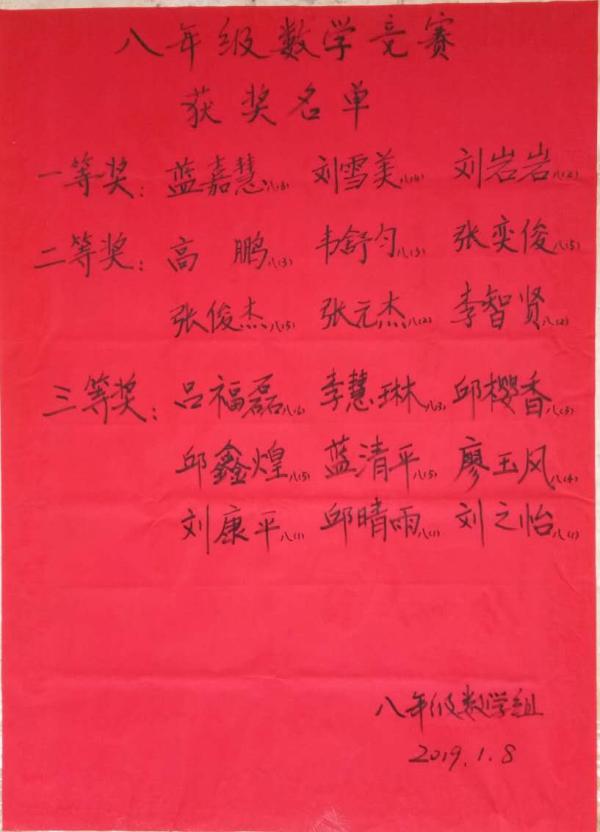 八年级数学竞赛
获奖名单
一等奖：蓝嘉慧 刘雪美八(4) 刘岩岩八(2)
二等奖：高鹏八(3) 韦舒勻 张奕俊八(5)
张俊杰八(5) 张元杰八(2) 李智贤八(2)
三等奖：吕福磊 李慧琳八(3) 邱樱香八(3)
邱鑫煌八(5) 蓝清平八(5) 廖玉风八(4)
刘康平八(1) 邱晴雨八(1) 刘之怡八(1)
八年级数学组
2019.1.8